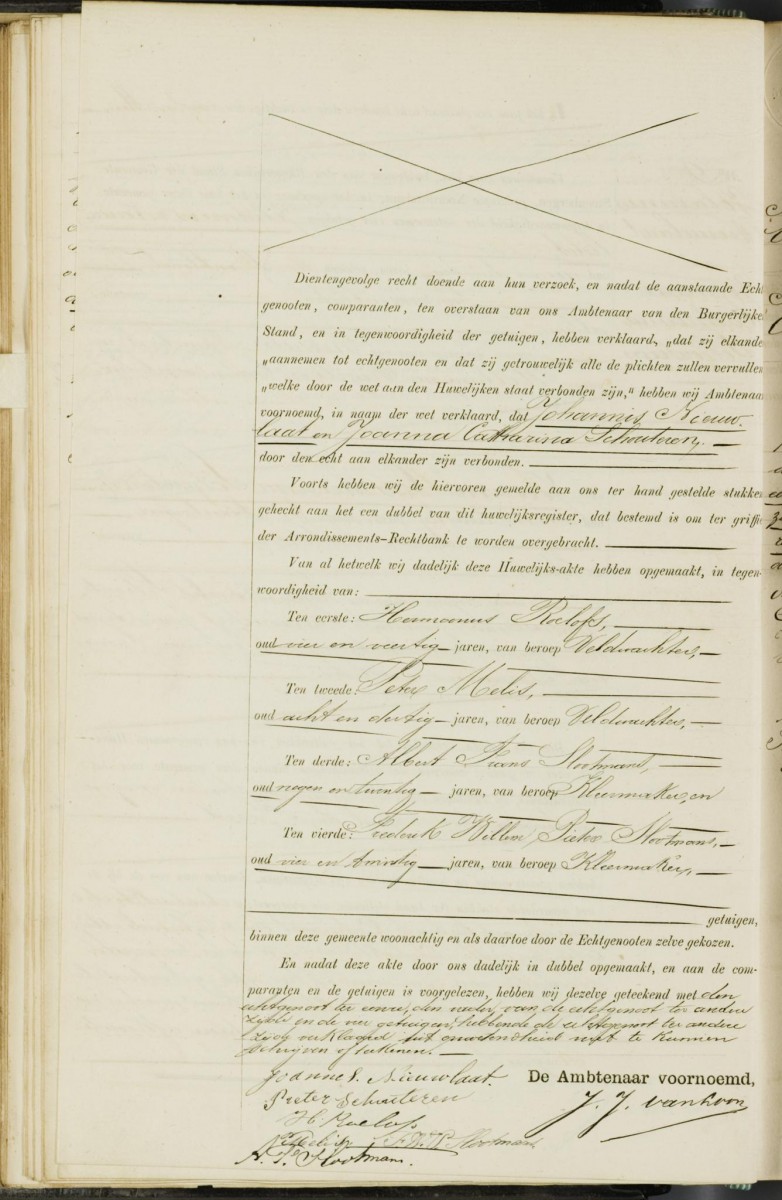 Dientengevolge recht doende aan hun verzoek, en nadat de aanstaande Echt
genooten, comparanten, ten overstaan van ons Ambtenaar van den Burgerlijke
Stand, en in tegenwoordigheid der getuigen, hebben verklaard, „dat zij elkande
„aannemen tot echtgenooten en dat zij getrouwelijk alle de plichten zullen vervullen
„welke door de wet aan den Huwelijken staat verbonden zijn,” hebben wij Ambtenaar
voornoemd, in naam der wet verklaard, dat Johannis Nieuw-
laat en Joanna Catharina Schouteren,
door den echt aan elkander zijn verbonden.
Voorts hebben wij de hiervoren gemelde aan ons ter hand gestelde stukken
gehecht aan het een dubbel van dit huwelijksregister, dat bestemd is om ter griffie
der Arrondissements-Rechtbank te worden overgebracht.
Van al hetwelk wij dadelijk deze Huwelijks-akte hebben opgemaakt, in tegen-
woordigheid van:
Ten eerste: Hermanus Roelofs,
oud vier en veertig jaren, van beroep Veldwachter,
Ten tweede: Peter Melis,
oud acht en dertig jaren, van beroep Veldwachter,
Ten derde: Albert Frans Slootmans,
oud negen en twintig jaren, van beroep Kleermaker, en
Ten vierde: Frederik Willem Pieter Slootmans,
oud vier en twintig jaren, van beroep Kleermaker,
getuigen,
binnen deze gemeente woonachtig en als daartoe door de Echtgenooten zelve gekozen.
En nadat deze akte door ons dadelijk in dubbel opgemaakt, en aan de com-
paranten en de getuigen is voorgelezen, hebben wij dezelve geteekend met den
echtgenoot ter eenre, den vader van de echtgenoot ter andere
zijde en de vier getuigen, hebbende de echtgenoot ter andere
zijde verklaard uit onwetendheid niet te kunnen
schrijven of teekenen.
Joannes. Nieuwlaat. De Ambtenaar voornoemd,
Pieter Schouteren J. J. van Hoon
H Roelofs
F. W. P. Slootmans
A. F. Slootmans.